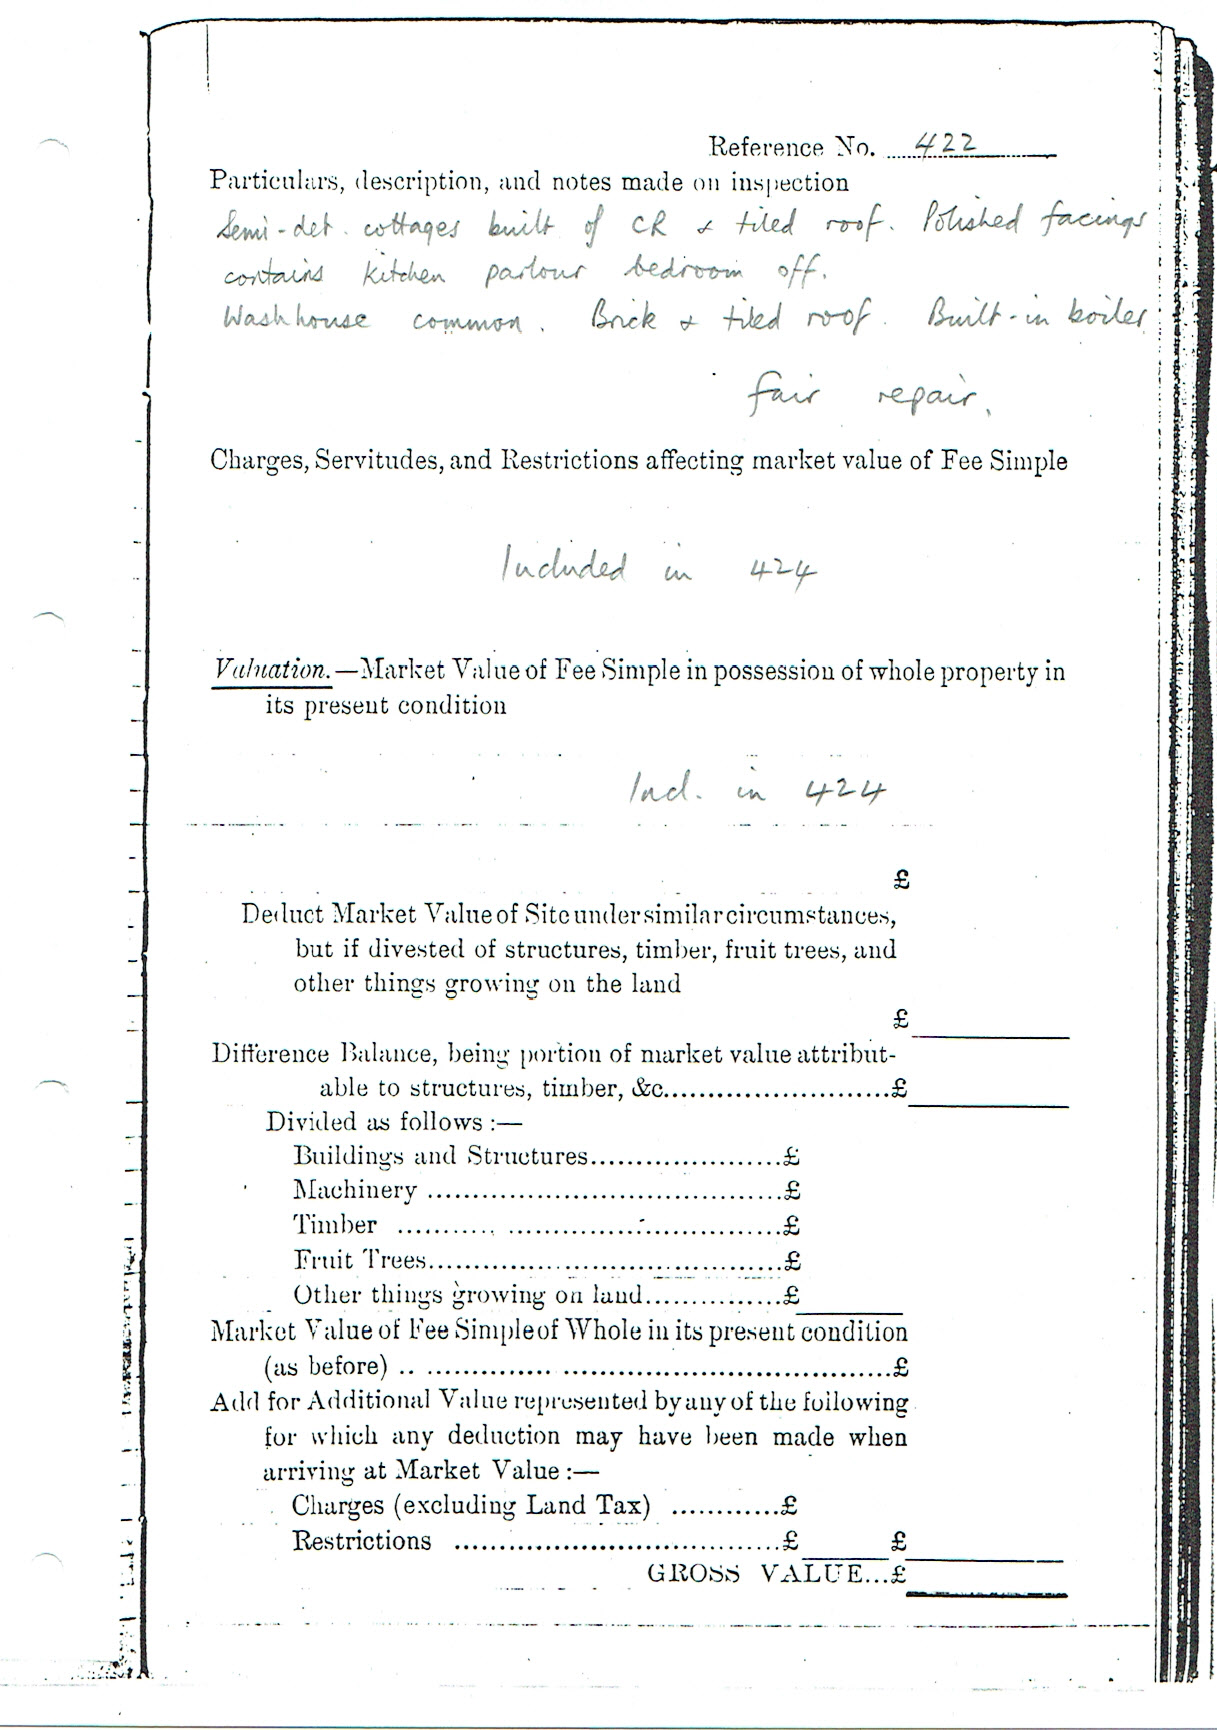 Reference No. 422
Particulars, description, and notes made on inspection
Semi-det. cottages built of CR & tiled roof. Polished facings
contains kitchen parlour bedroom off.
Washhouse common. Brick & tiled roof. Built-in boiler
fair repair.
Charges, Servitudes, and Restrictions affecting market value of Fee Simple
Included in 424
Valuation.—Market Value of Fee Simple in possession of whole property in
its present condition
Incl. in 424
£
Deduct Market Value of Site under similar circumstances,
but if divested of structures, timber, fruit trees, and
other things growing on the land
£
Difference Balance, being portion of market value attribut-
able to structures, timber, &c.........................£
Divided as follows :—
Buildings and Structures......................£
Machinery ......................................£
Timber ........... .............................£
Fruit Trees......................................£
Other things growing on land...............£
Market Value of Fee Simple of Whole in its present condition
(as before) .. ..................................................£
Add for Additional Value represented by any of the following
for which any deduction may have been made when
arriving at Market Value :—
Charges (excluding Land Tax) ............£
Restrictions ...................................£ £
GROSS VALUE...£